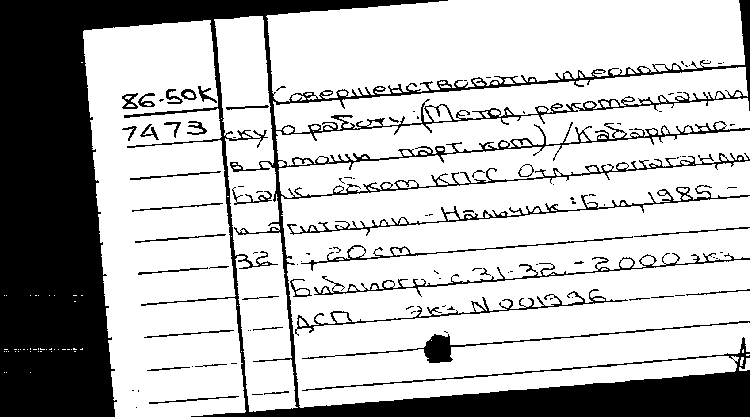 86-50К Совершенствовати идеологиче-
7473 скую работу: (Метод. рекомендации
в помощи парт. ком) / Кабардино-
Балк. обком КПСС Отд. пропаганды
и агитации. - Нальчик: Б.и., 1985. -
32 с; 20 cm
Библиогр.: с. 31-32. - 2000 экз
ДСП. Экз N 001936